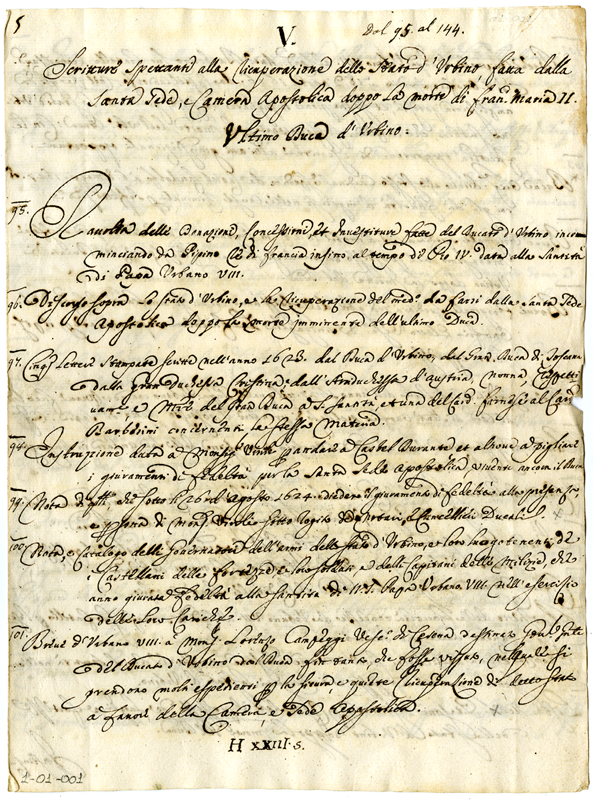 5
V.
Dal 95. al 144.
Scritture Spettanti alla Ricuperazione dello Stato d'Urbino fatta dalla
Santa Sede, e Camera Apostolica doppo La morte di Fran. Maria II.
Ultimo Duca d'Urbino.
95. Raccolta delle Donazioni, Concessioni, et Investiture fatte del Ducato d'Urbino inco=
minciando da Pipino Rè di Francia insino al tempo di Pio IV. data alla Santità
di Papa Urbano VIII.
96. Discorso sopra lo Stato d'Urbino, e la Ricuperazione del med.º da farsi dalla Santa Sede
Apostolica doppo la morte imminente dell'ultimo Duca.
97. Cinq. Lettere Stampate scritte nell'anno 1623. dal Duca d'Urbino, dal Gran Duca di Toscana
dalla gran Duchessa Cristina, dall'Arciduchessa d'Austria,
e del Gran Duca a S. Santità et una del Card. Farnese al Card.
Barberini concernenti la stessa materia.
98. Instruzione data a per andare a Castel Durante et altrove a pigliare
i giuramenti di fedeltà per la Santa Sede Apostolica vivente ancora il Duca
99. Nota di che sotto li 26 d'Agosto 1624. diedero il giuramento di fedeltà alla presenza
e persona di Mons. sotto rogito de Notari, e Cancellieri Ducali.
100. Nota, e Catalogo delli Governatori dell'armi dello Stato d'Urbino, et loro luogotenenti, de
i Castellani delle fortezze e loro soldati e delli Capitani delle Milizie, che
anno giurata fedeltà alla Santità di N. S. Papa Urbano VIII. nell'esercizio
delle loro Cariche.
101. Breve d'Urbano VIII. a Mons. Lorenzo Campeggi Vesc. di Cesena destinato
del Ducato d'Urbino dal Duca fin tanto che fosse vissuto, nel quale si
prendono molti espedienti per la sicura, e quieta ricuperazione di detto Stato
a favore della Camera, e Sede Apostolica.
H XXIII.5.
1-01-001